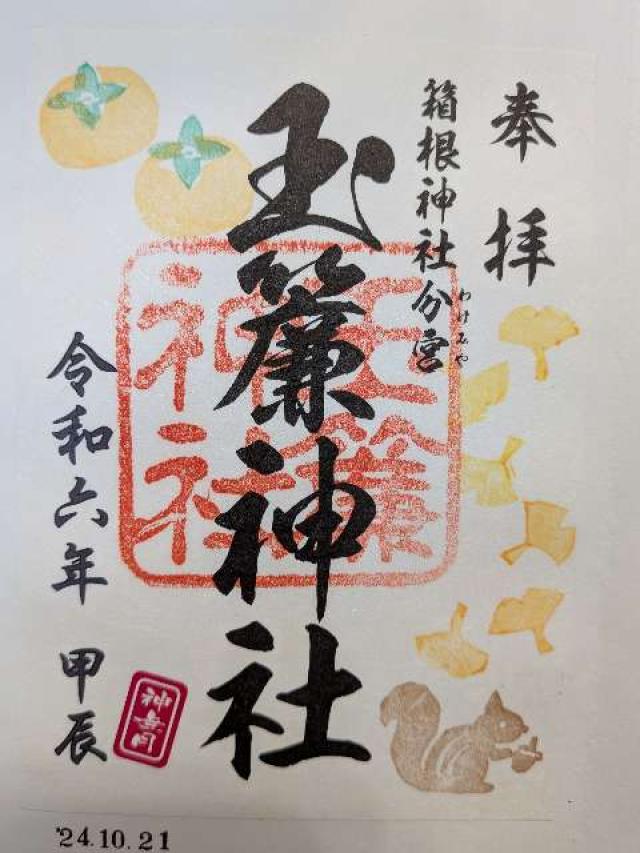 奉拝
箱根神社分宮
わけみや
玉簾神社
玉簾
神社
令和六年 甲辰
神無月
'24.10.21